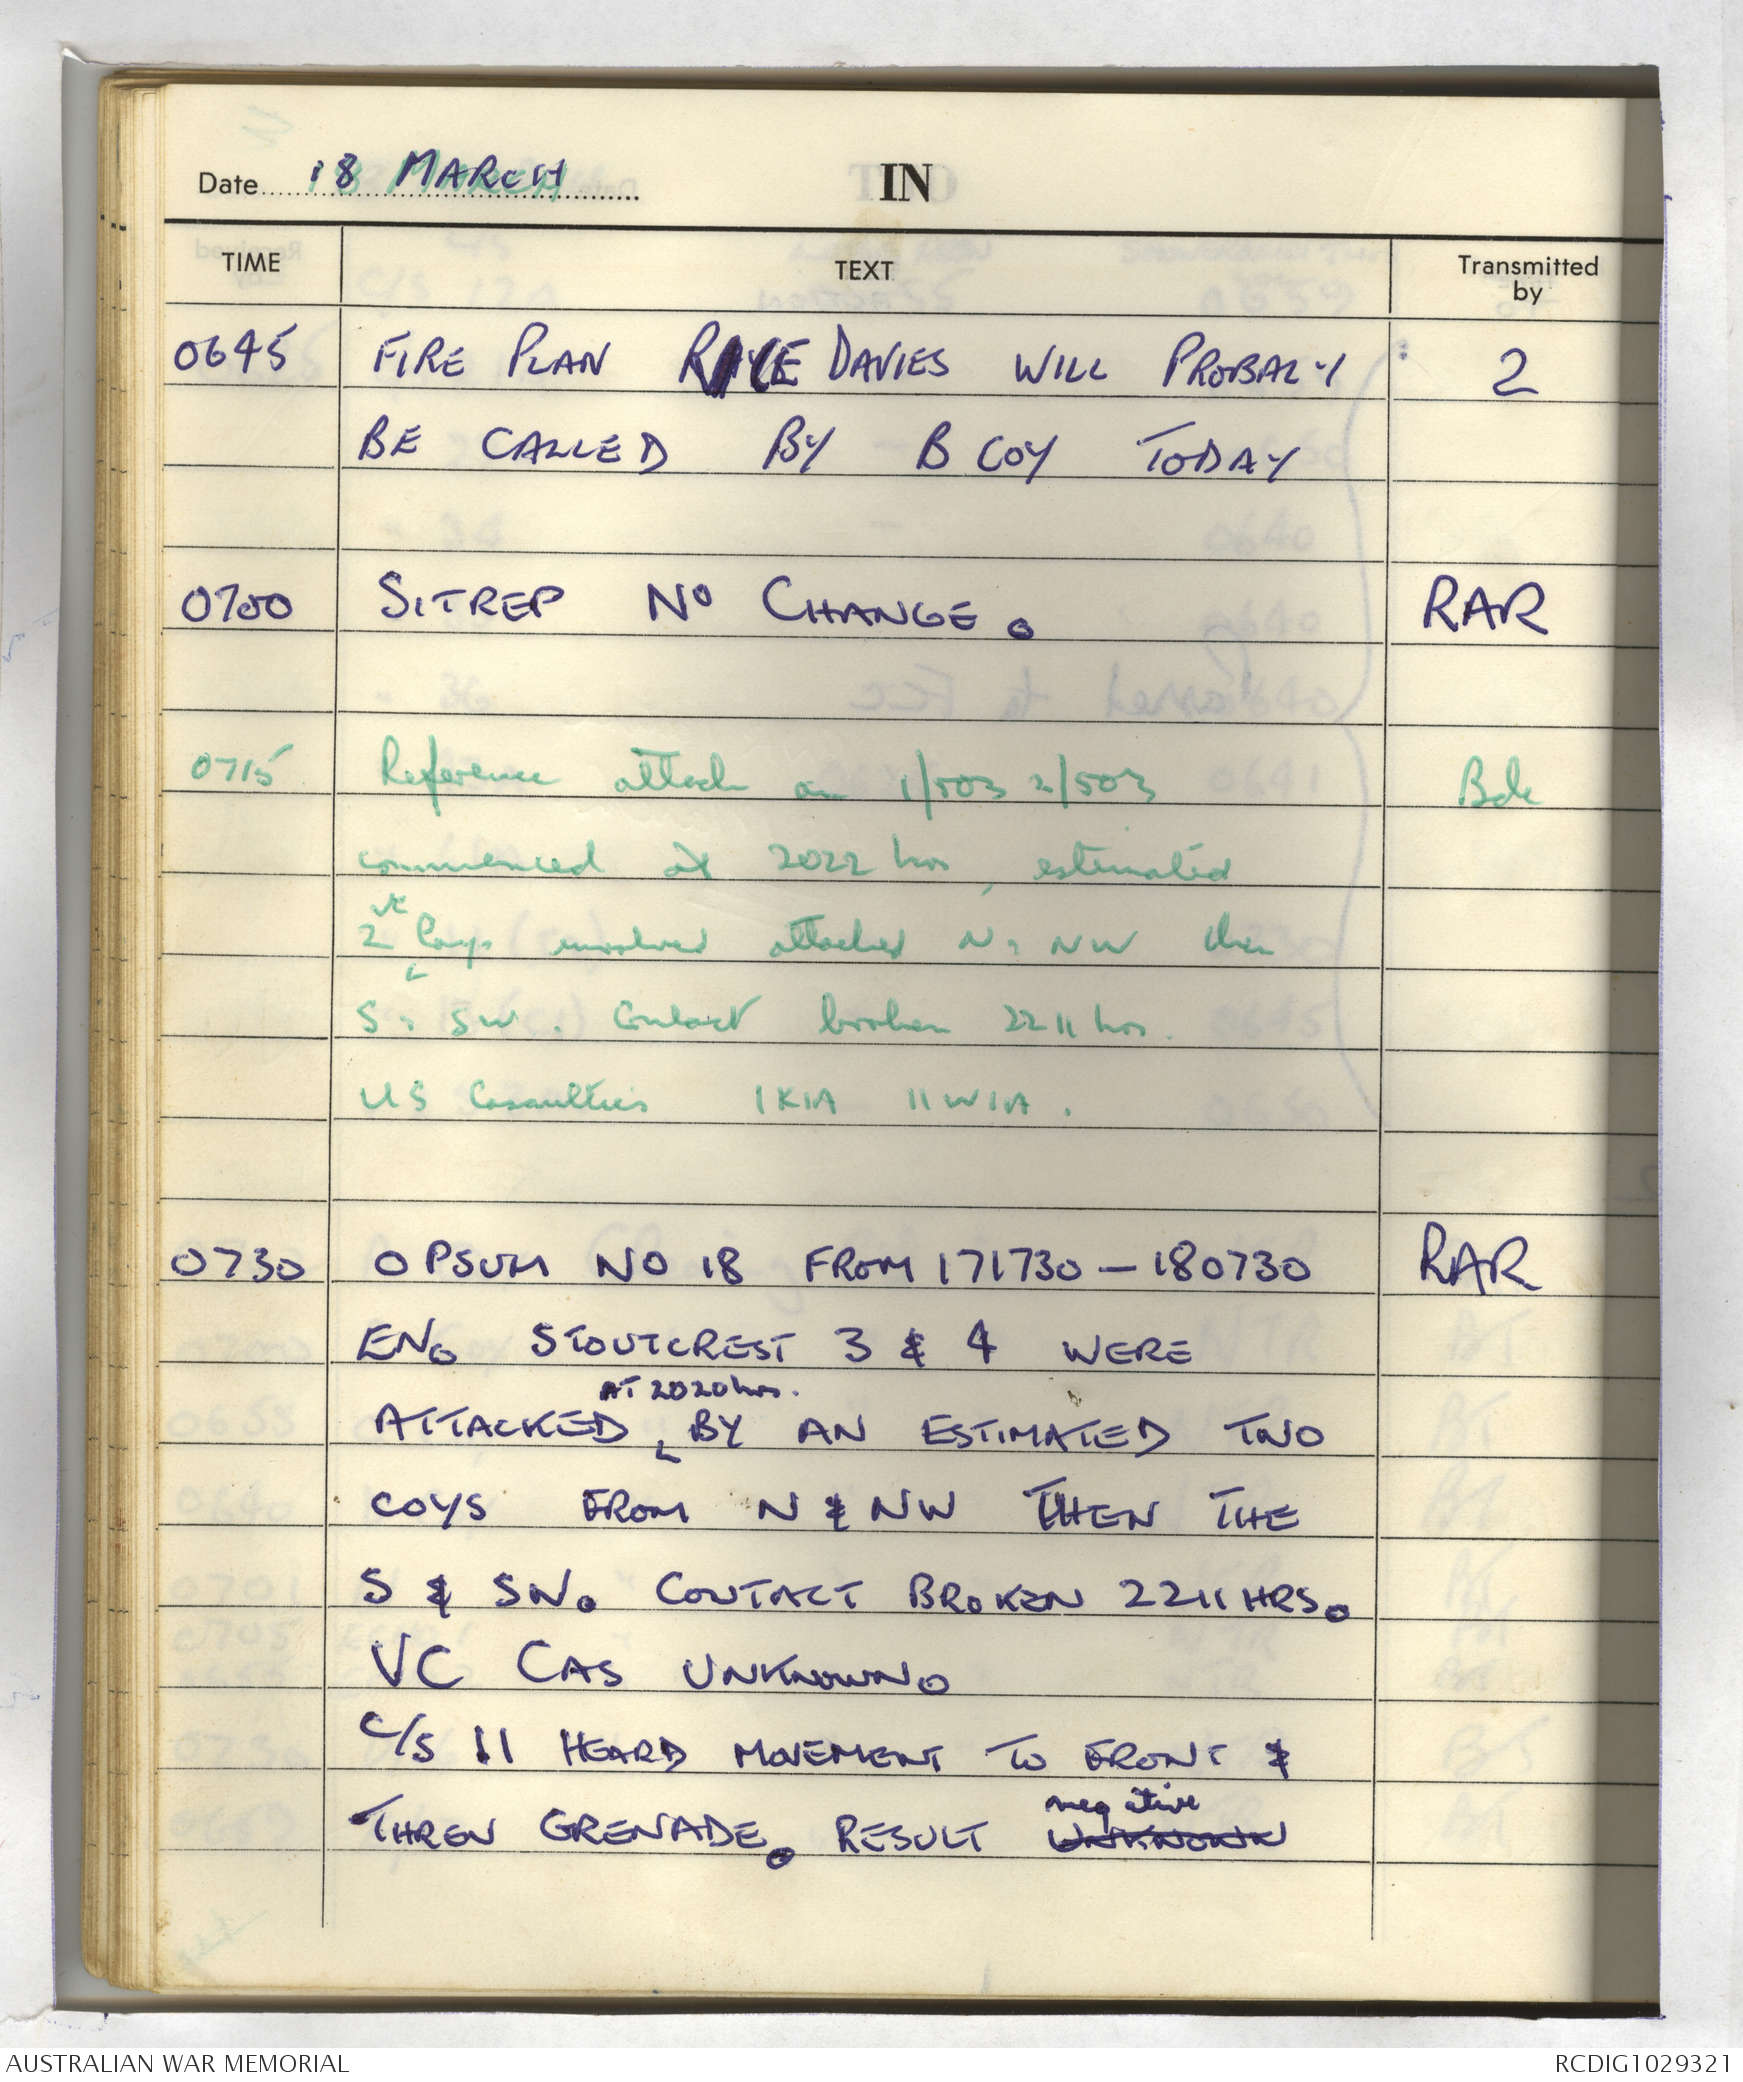 Date 18 MARCH IN
TIME TEXT Transmitted by
0645 FIRE PLAN DAVIES WILL PROBALY 2
BE CALLED BY B COY TODAY
0700 SITREP NO CHANGE. RAR
0715 Reference attack on 1/503 2/503 Bde
commenced at 2022 hrs, estimated
2 VC Coys involved attacked N & NW then
S & SW. Contact broken 2211 hrs.
US Casualties 1 KIA 11 WIA.
0730 OPSUM NO 18 FROM 171730 - 180730 RAR
EN. STOUTCREST 3 & 4 WERE
AT 2020 hrs.
ATTACKED BY AN ESTIMATED TWO
COYS FROM N & NW THEN THE
S & SW. CONTACT BROKEN 2211 HRS.
VC CAS UNKNOWN.
C/S 11 HEARD MOVEMENT TO FRONT &
negative
THREW GRENADE. RESULT UNKNOWN
AUSTRALIAN WAR MEMORIAL RCDIG1029321